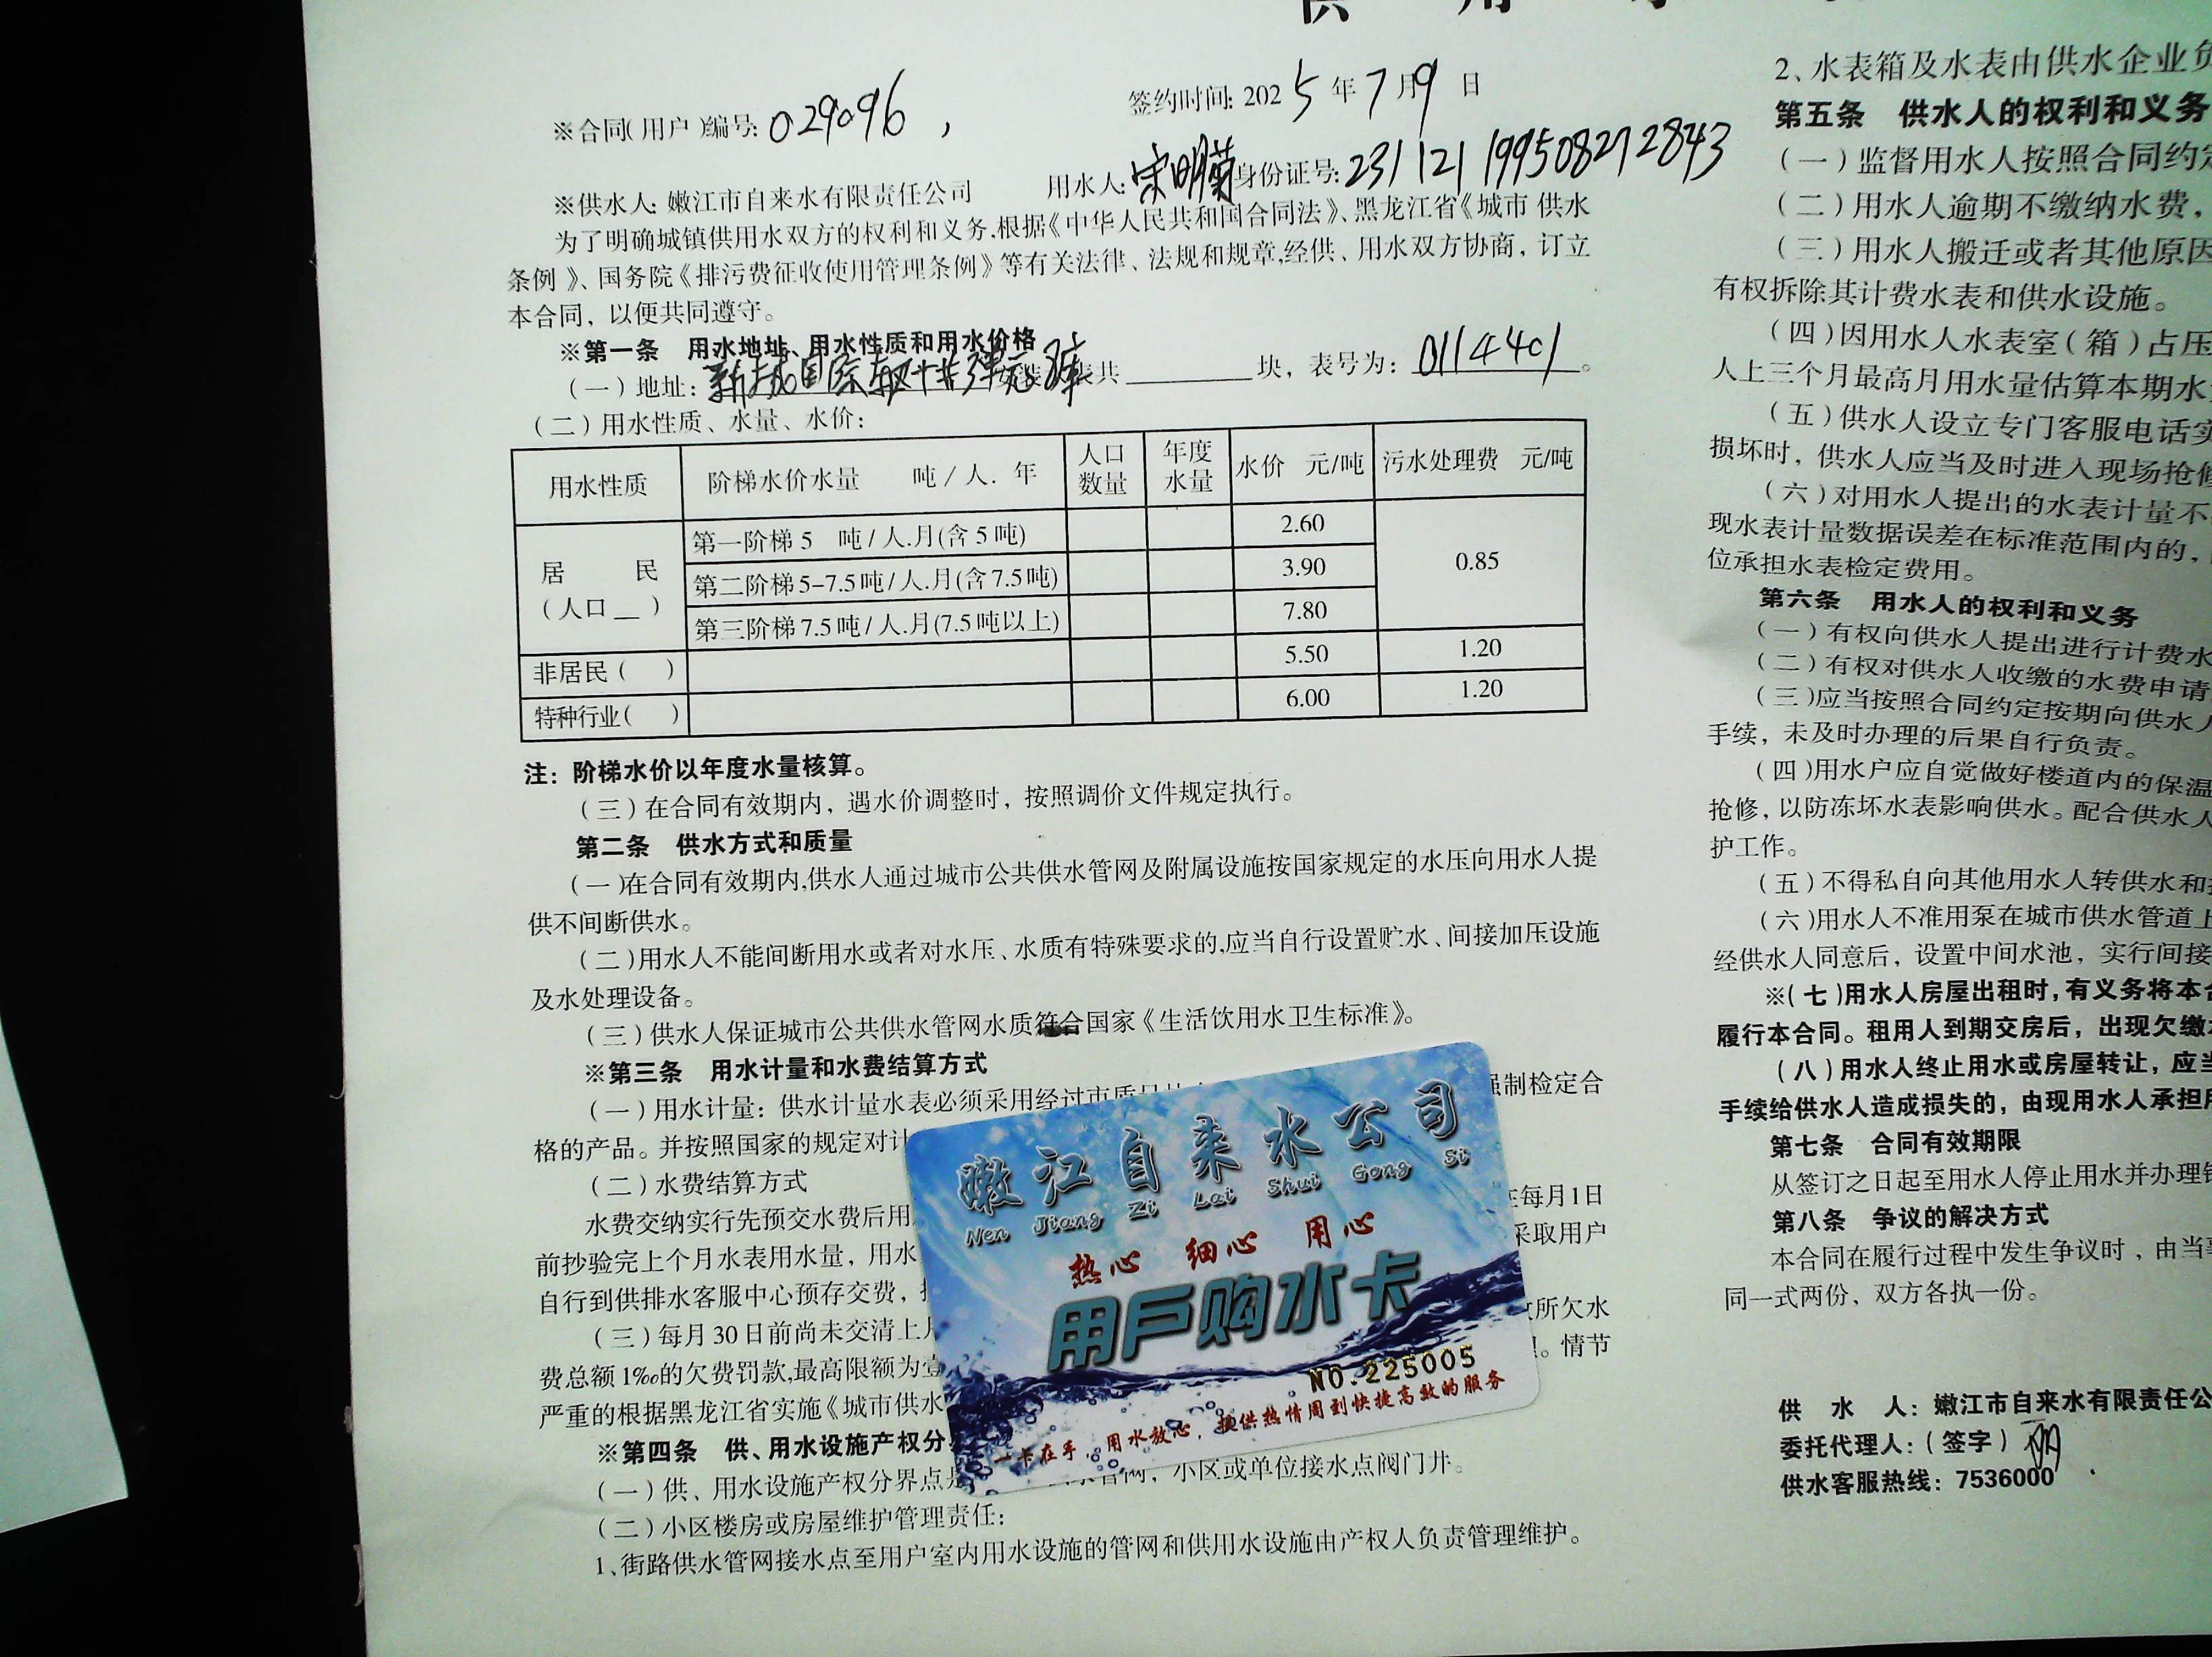 ※合同(用户)编号: 029096,
签约时间: 2025年7月9日
※供水人: 嫩江市自来水有限责任公司 用水人: 宋明菊 身份证号: 231121199508272843
为了明确城镇供用水双方的权利和义务,根据《中华人民共和国合同法》、黑龙江省《城市 供水
条例》、国务院《排污费征收使用管理条例》等有关法律、法规和规章,经供、用水双方协商，订立
本合同，以便共同遵守。
※第一条 用水地址、用水性质和用水价格
(一)地址: 新城国际 表共 块，表号为: 0114401。
(二)用水性质、水量、水价:
用水性质 阶梯水价水量 吨/人. 年 人口数量 年度水量 水价 元/吨 污水处理费 元/吨
居民(人口__) 第一阶梯 5 吨/人.月(含 5 吨) 2.60 0.85
第二阶梯 5-7.5吨/人.月(含7.5吨) 3.90
第三阶梯 7.5吨/人.月(7.5吨以上) 7.80
非居民( ) 5.50 1.20
特种行业( ) 6.00 1.20
注: 阶梯水价以年度水量核算。
(三)在合同有效期内，遇水价调整时，按照调价文件规定执行。
第二条 供水方式和质量
(一)在合同有效期内,供水人通过城市公共供水管网及附属设施按国家规定的水压向用水人提
供不间断供水。
(二)用水人不能间断用水或者对水压、水质有特殊要求的,应当自行设置贮水、间接加压设施
及水处理设备。
(三)供水人保证城市公共供水管网水质符合国家《生活饮用水卫生标准》。
※第三条 用水计量和水费结算方式
(一)用水计量: 供水计量水表必须采用经过市质 强制检定合
格的产品。并按照国家的规定对计
(二)水费结算方式
水费交纳实行先预交水费后用 每月1日
前抄验完上个月水表用水量，用水 采取用户
自行到供排水客服中心预存交费，
(三)每月30日前尚未交清上月 所欠水
费总额1‰的欠费罚款,最高限额为壹 。情节
严重的根据黑龙江省实施《城市供水
※第四条 供、用水设施产权分
(一)供、用水设施产权分界点是 管网，小区或单位接水点阀门井。
(二)小区楼房或房屋维护管理责任:
1、街路供水管网接水点至用户室内用水设施的管网和供用水设施由产权人负责管理维护。
嫩江自来水公司
Nen Jiang Zi Lai Shui Gong Si
热心 细心 用心
用户购水卡
NO.225005
一卡在手，用水放心，提供热情周到快捷高效的服务
2、水表箱及水表由供水企业负
第五条 供水人的权利和义务
(一)监督用水人按照合同约定
(二)用水人逾期不缴纳水费，
(三)用水人搬迁或者其他原因
有权拆除其计费水表和供水设施。
(四)因用水人水表室(箱)占压
人上三个月最高月用水量估算本期水
(五)供水人设立专门客服电话实
损坏时，供水人应当及时进入现场抢修
(六)对用水人提出的水表计量不
现水表计量数据误差在标准范围内的，
位承担水表检定费用。
第六条 用水人的权利和义务
(一)有权向供水人提出进行计费水
(二)有权对供水人收缴的水费申请
(三)应当按照合同约定按期向供水人
手续，未及时办理的后果自行负责。
(四)用水户应自觉做好楼道内的保温
抢修，以防冻坏水表影响供水。配合供水人
护工作。
(五)不得私自向其他用水人转供水和
(六)用水人不准用泵在城市供水管道上
经供水人同意后，设置中间水池，实行间接
※(七)用水人房屋出租时,有义务将本合
履行本合同。租用人到期交房后，出现欠缴
(八)用水人终止用水或房屋转让，应当
手续给供水人造成损失的，由现用水人承担
第七条 合同有效期限
从签订之日起至用水人停止用水并办理
第八条 争议的解决方式
本合同在履行过程中发生争议时，由当事
同一式两份，双方各执一份。
供 水 人: 嫩江市自来水有限责任公
委托代理人: (签字)
供水客服热线: 7536000